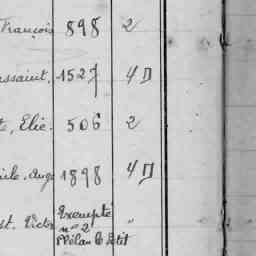 François 898 2
ussaint, 1527 4 D
te, Elie. 506 2
ile. Aug 1898 4 D
st. Victor Exempté "
n° 2
Mélan le Petit